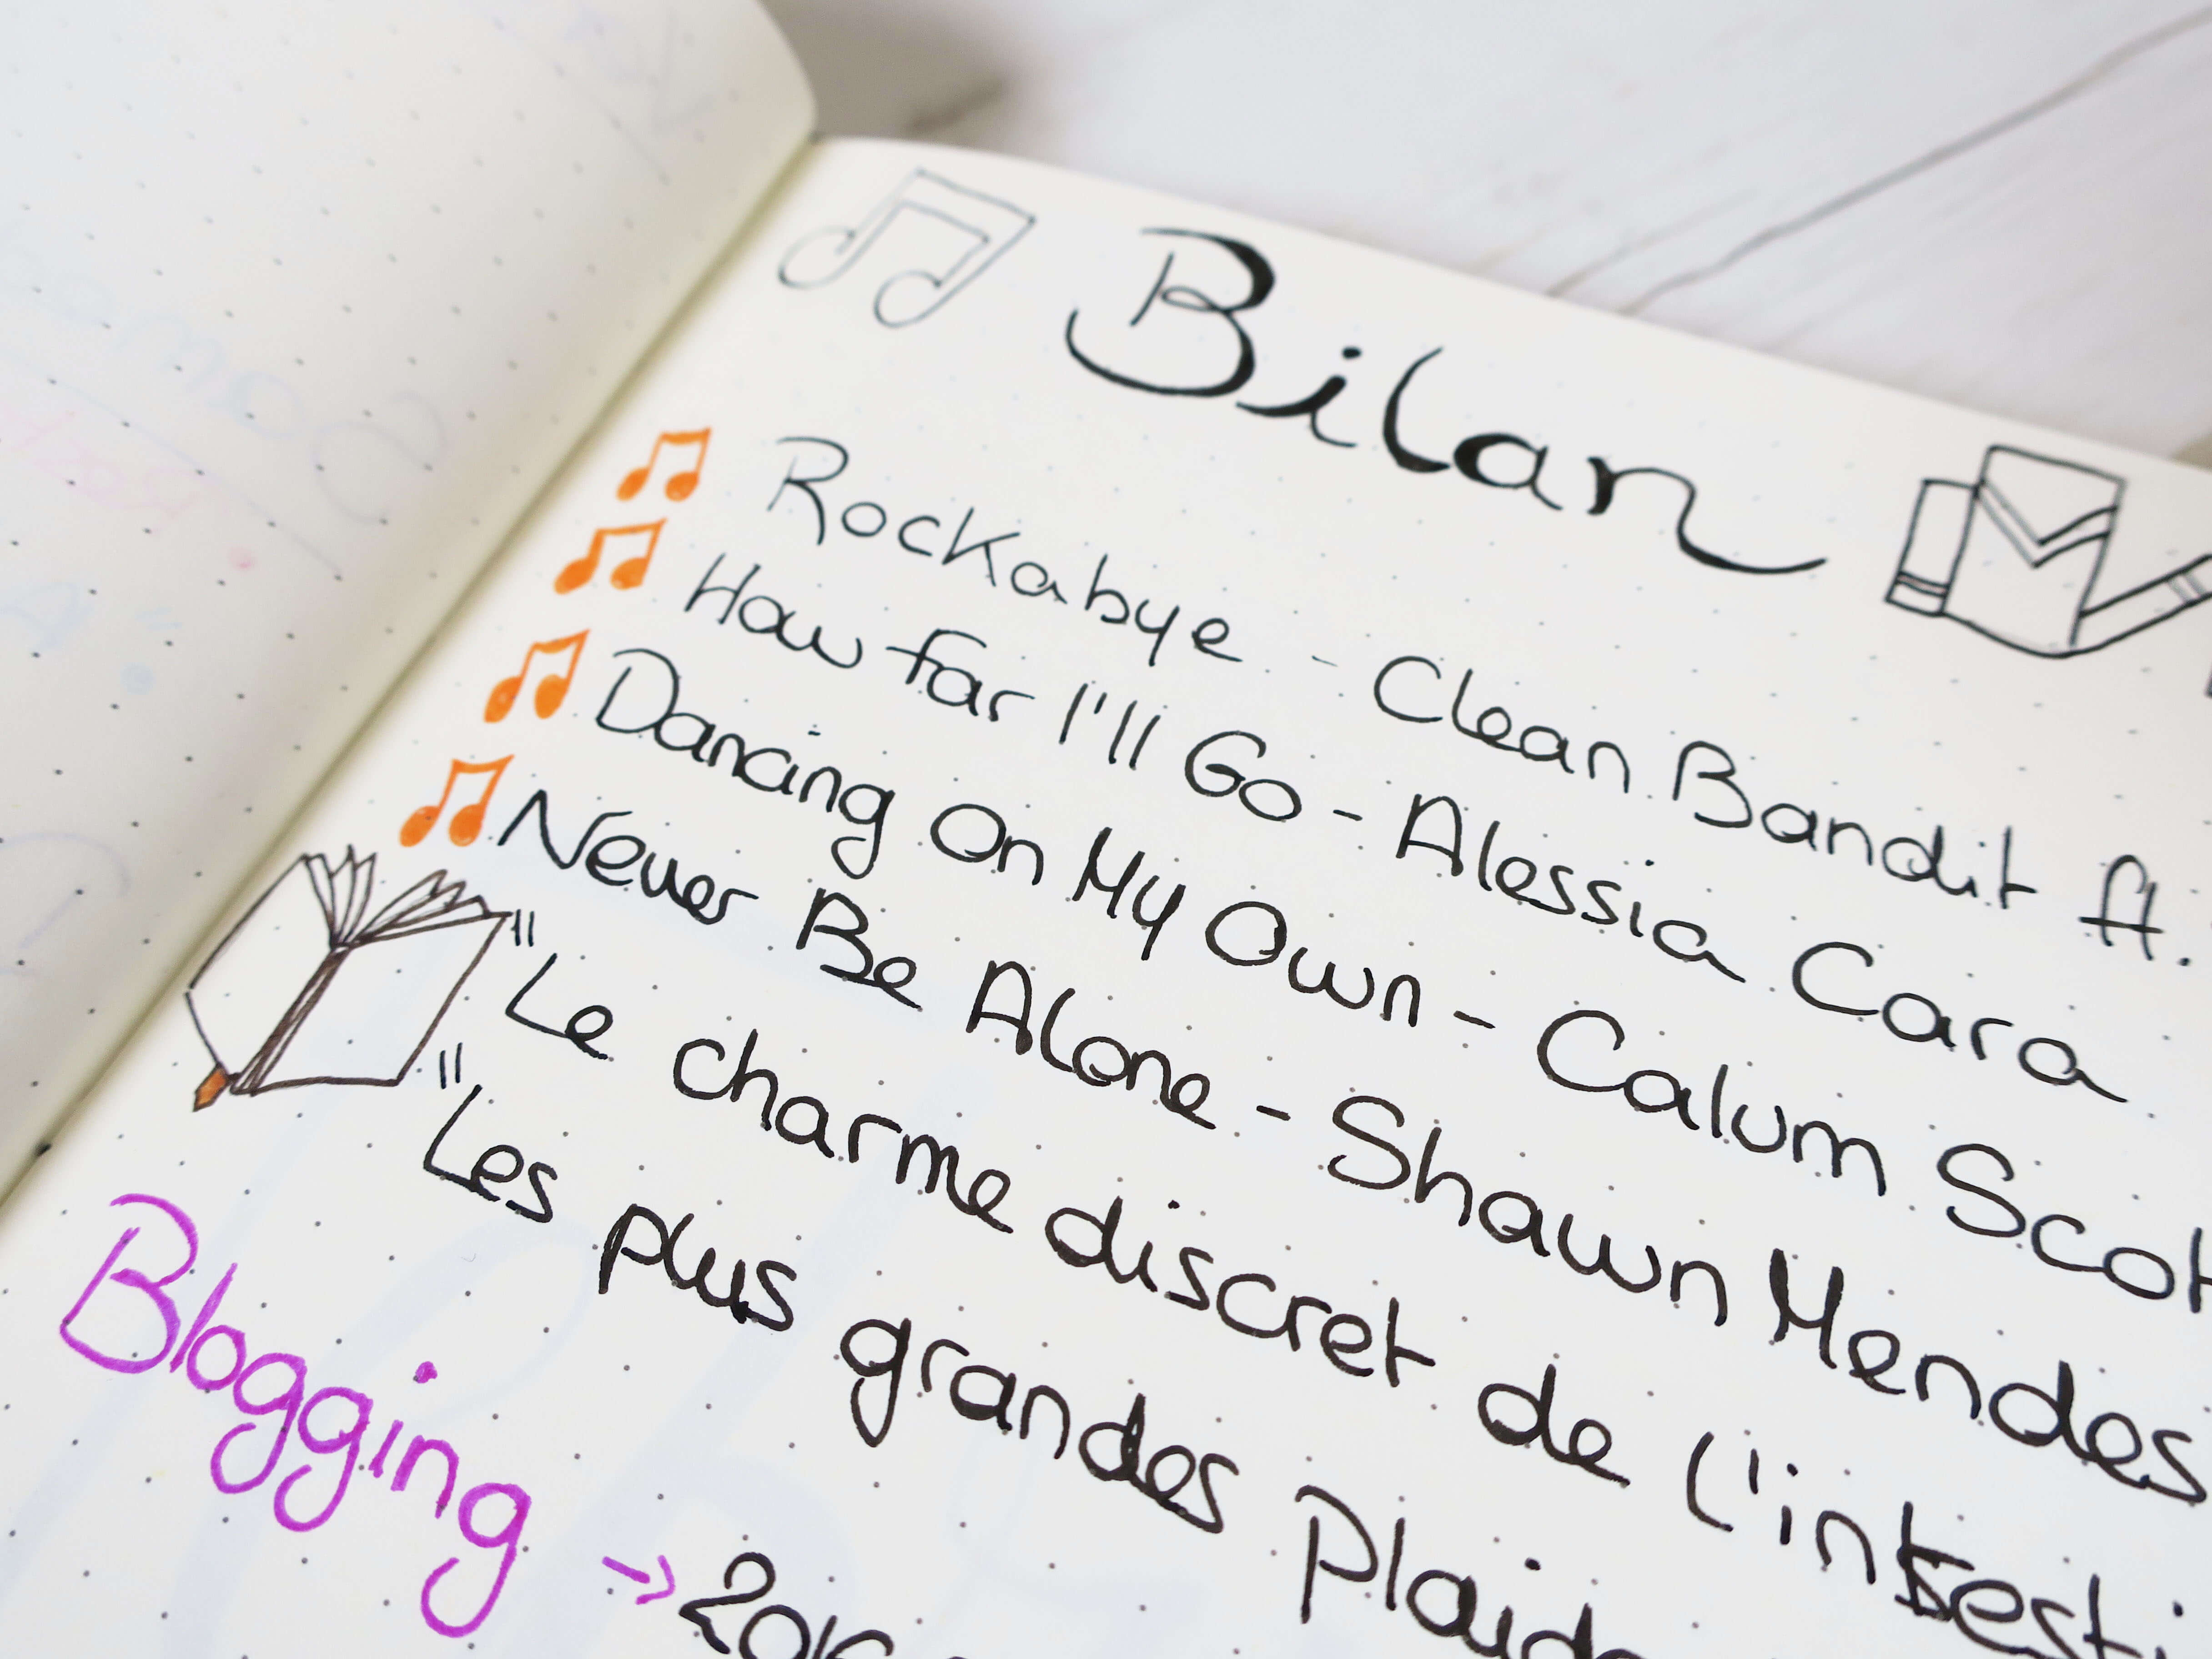 Bilan
Rockabye - Clean Bandit ft.
How far I'll Go - Alessia Cara
Dancing On My Own - Calum Scot
Never Be Alone - Shawn Mendes
"Le charme discret de l'intesti
"Les plus grandes Plaid
Blogging
→ 2016